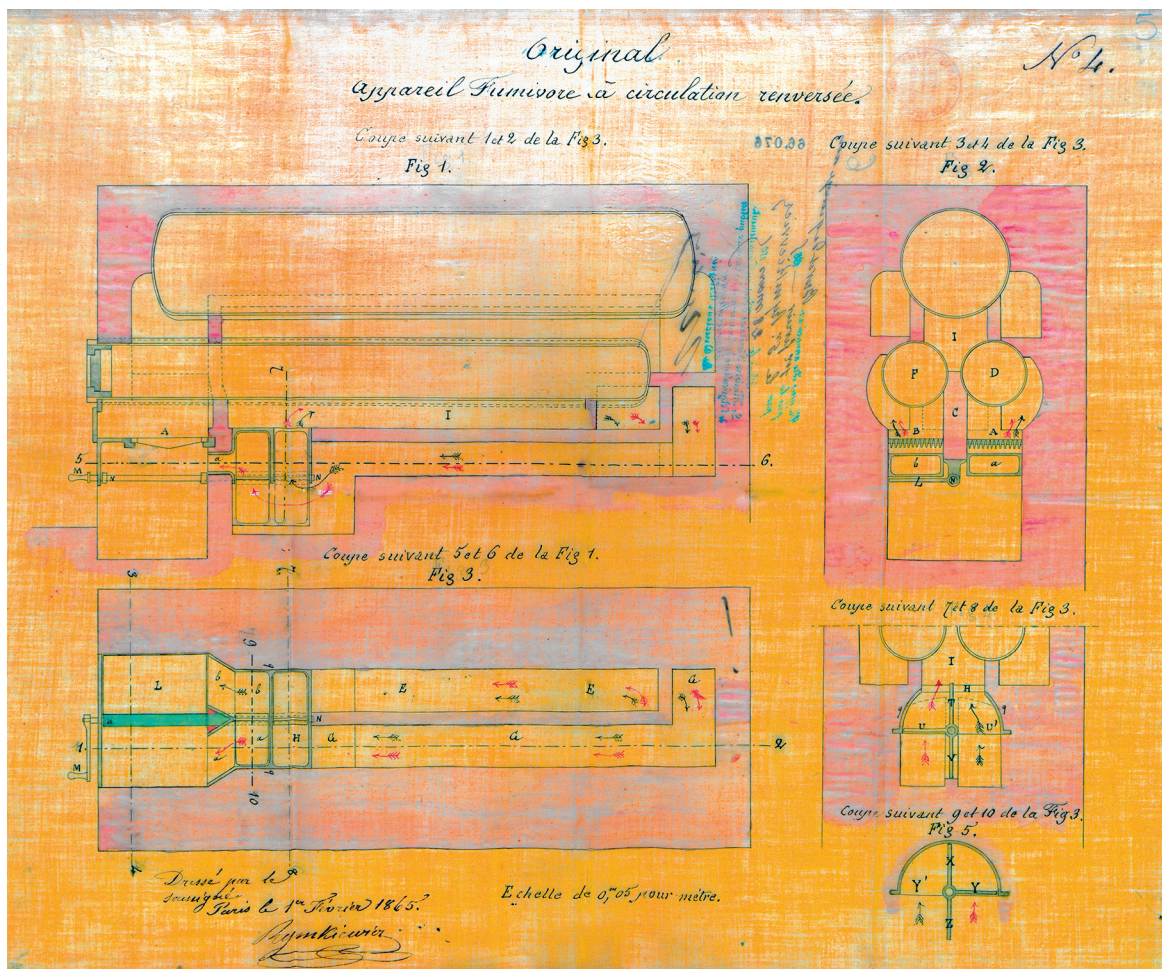 Original
N° 4.
Appareil Fumivore à circulation renversée.
Coupe suivant 1 et 2 de la Fig 3.
Fig 1.
66.076
Coupe suivant 3 et 4 de la Fig 3.
Fig 2.
I
F
D
C
B
A
b
a
L
N
7
T
I
A
a
5
M
N
N
6.
Coupe suivant 5 et 6 de la Fig 1.
Fig 3.
3
7
9
q
L
b
b
E
E
G
N
a
a
H
G
G
1.
M
2
q
10
4
8
Coupe suivant 7 et 8 de la Fig 3.
I
H
T
q
q
U
U'
V
Coupe suivant 9 et 10 de la Fig 3.
Fig 5.
X
Y'
Y
Z
Dressé par le
soussigné
Paris le 1er Février 1865.
Rymkiewicz
Echelle de 0,m05 pour mètre.